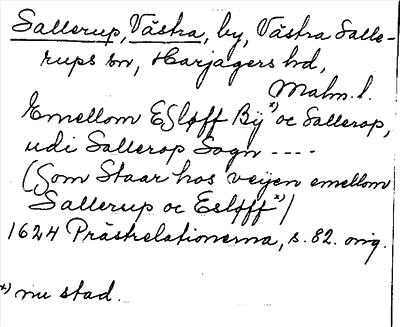 Sallerup, Västra, by, Västra Salle-
rups sn, Harjagers hd,
Malm. l.
Emellom Esløff Bÿ*) oc Sallerop,
udi Sallerop Sogn ----
(Som Staar hos veÿen emellom
Sallerup oc Esløff*)/
1624 Prästrelationerna, s. 82. orig.
*) nu stad.